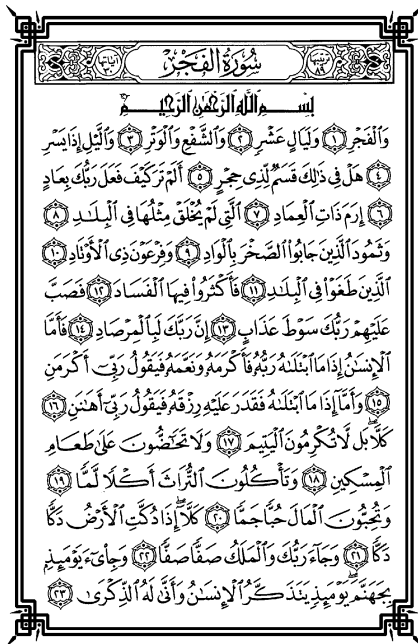 ترتيبها ٨٩ سُورَةُ الفَجْرِ آياتها ٣٠
بِسْمِ اللَّهِ الرَّحْمَٰنِ الرَّحِيمِ
وَالْفَجْرِ ١ وَلَيَالٍ عَشْرٍ ٢ وَالشَّفْعِ وَالْوَتْرِ ٣ وَالَّيْلِ إِذَا يَسْرِ
٤ هَلْ فِى ذَٰلِكَ قَسَمٌ لِّذِى حِجْرٍ ٥ أَلَمْ تَرَ كَيْفَ فَعَلَ رَبُّكَ بِعَادٍ
٦ إِرَمَ ذَاتِ الْعِمَادِ ٧ الَّتِى لَمْ يُخْلَقْ مِثْلُهَا فِى الْبِلَٰدِ ٨
وَثَمُودَ الَّذِينَ جَابُوا الصَّخْرَ بِالْوَادِ ٩ وَفِرْعَوْنَ ذِى الْأَوْتَادِ ١٠
الَّذِينَ طَغَوْا فِى الْبِلَٰدِ ١١ فَأَكْثَرُوا فِيهَا الْفَسَادَ ١٢ فَصَبَّ
عَلَيْهِمْ رَبُّكَ سَوْطَ عَذَابٍ ١٣ إِنَّ رَبَّكَ لَبِالْمِرْصَادِ ١٤ فَأَمَّا
الْإِنسَٰنُ إِذَا مَا ابْتَلَىٰهُ رَبُّهُ فَأَكْرَمَهُ وَنَعَّمَهُ فَيَقُولُ رَبِّى أَكْرَمَنِ
١٥ وَأَمَّا إِذَا مَا ابْتَلَىٰهُ فَقَدَرَ عَلَيْهِ رِزْقَهُ فَيَقُولُ رَبِّى أَهَٰنَنِ ١٦
كَلَّا ۖ بَل لَّا تُكْرِمُونَ الْيَتِيمَ ١٧ وَلَا تَحَٰضُّونَ عَلَىٰ طَعَامِ
الْمِسْكِينِ ١٨ وَتَأْكُلُونَ التُّرَاثَ أَكْلًا لَّمًّا ١٩
وَتُحِبُّونَ الْمَالَ حُبًّا جَمًّا ٢٠ كَلَّا ۖ إِذَا دُكَّتِ الْأَرْضُ دَكًّا
دَكًّا ٢١ وَجَاءَ رَبُّكَ وَالْمَلَكُ صَفًّا صَفًّا ٢٢ وَجِاىءَ يَوْمَئِذٍ
بِجَهَنَّمَ ۚ يَوْمَئِذٍ يَتَذَكَّرُ الْإِنسَٰنُ وَأَنَّىٰ لَهُ الذِّكْرَىٰ ٢٣